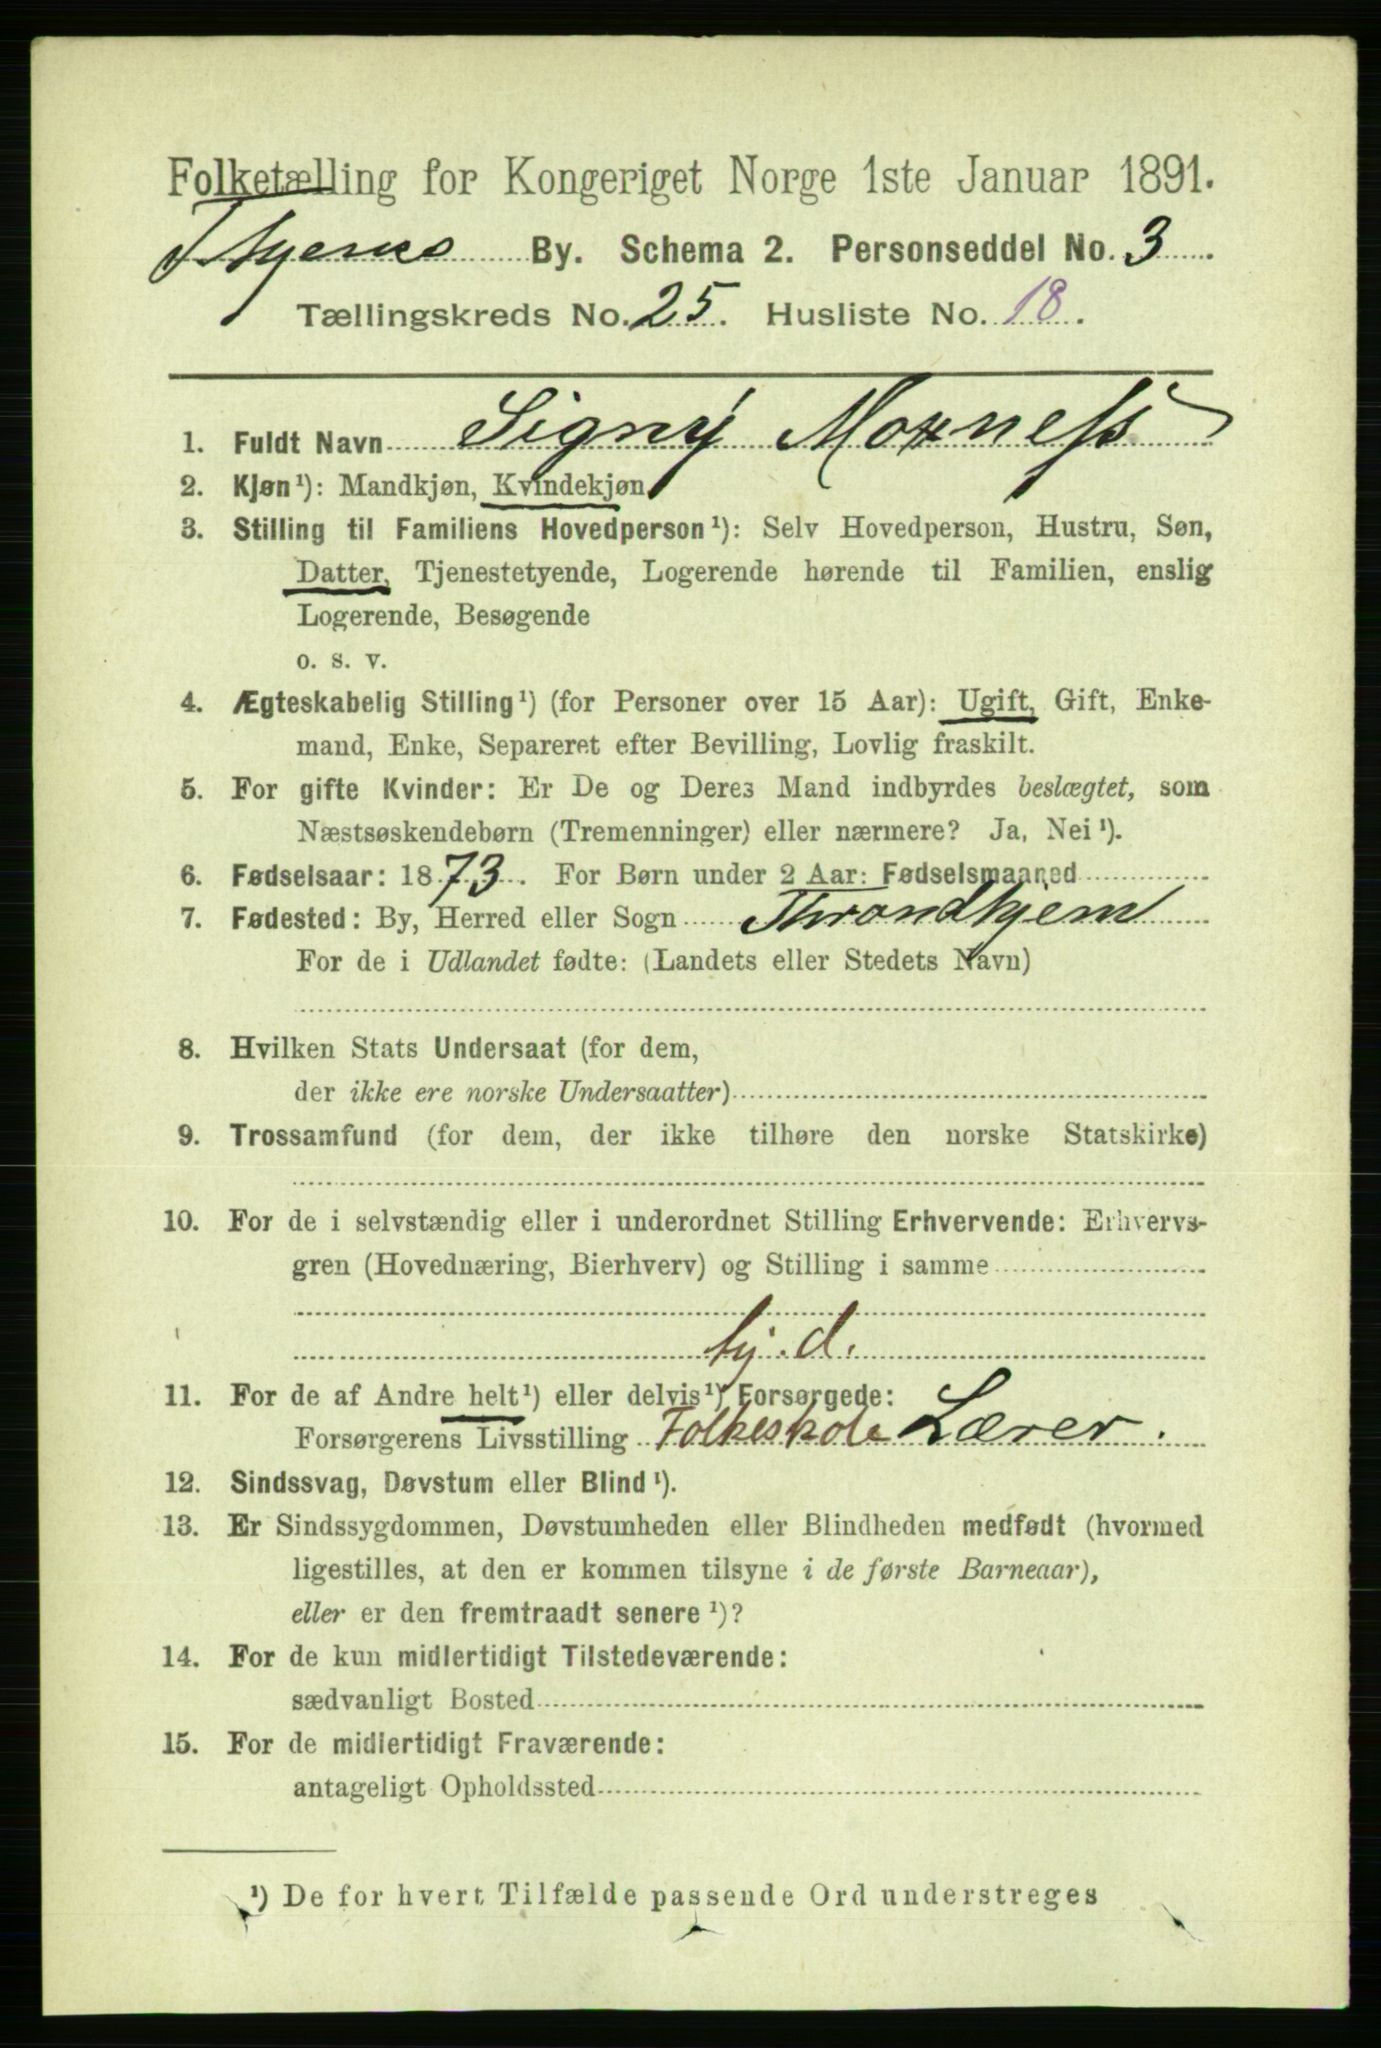 Folketælling for Kongeriget Norge 1ste Januar 1891.
Thjems By. Schema 2. Personseddel No. 3
Tællingskreds No. 25. Husliste No. 18.
1. Fuldt Navn Signy Moxness
2. Kjøn¹): Mandkjøn, Kvindekjøn
3. Stilling til Familiens Hovedperson¹): Selv Hovedperson, Hustru, Søn,
Datter, Tjenestetyende, Logerende hørende til Familien, enslig
Logerende, Besøgende
o. s. v.
4. Ægteskabelig Stilling¹) (for Personer over 15 Aar): Ugift, Gift, Enke-
mand, Enke, Separeret efter Bevilling, Lovlig fraskilt.
5. For gifte Kvinder: Er De og Deres Mand indbyrdes beslægtet, som
Næstsøskendebørn (Tremenninger) eller nærmere? Ja, Nei¹).
6. Fødselsaar: 1873. For Børn under 2 Aar: Fødselsmaaned
7. Fødested: By, Herred eller Sogn Throndhjem
For de i Udlandet fødte: (Landets eller Stedets Navn)
8. Hvilken Stats Undersaat (for dem,
der ikke ere norske Undersaatter)
9. Trossamfund (for dem, der ikke tilhøre den norske Statskirke)
10. For de i selvstændig eller i underordnet Stilling Erhvervende: Erhvervs-
gren (Hovednæring, Bierhverv) og Stilling i samme
hj. d.
11. For de af Andre helt¹) eller delvis¹) Forsørgede:
Forsørgerens Livsstilling Folkeskole Lærer.
12. Sindssvag, Døvstum eller Blind¹).
13. Er Sindssygdommen, Døvstumheden eller Blindheden medfødt (hvormed
ligestilles, at den er kommen tilsyne i de første Barneaar),
eller er den fremtraadt senere¹)?
14. For de kun midlertidigt Tilstedeværende:
sædvanligt Bosted
15. For de midlertidigt Fraværende:
antageligt Opholdssted
¹) De for hvert Tilfælde passende Ord understreges